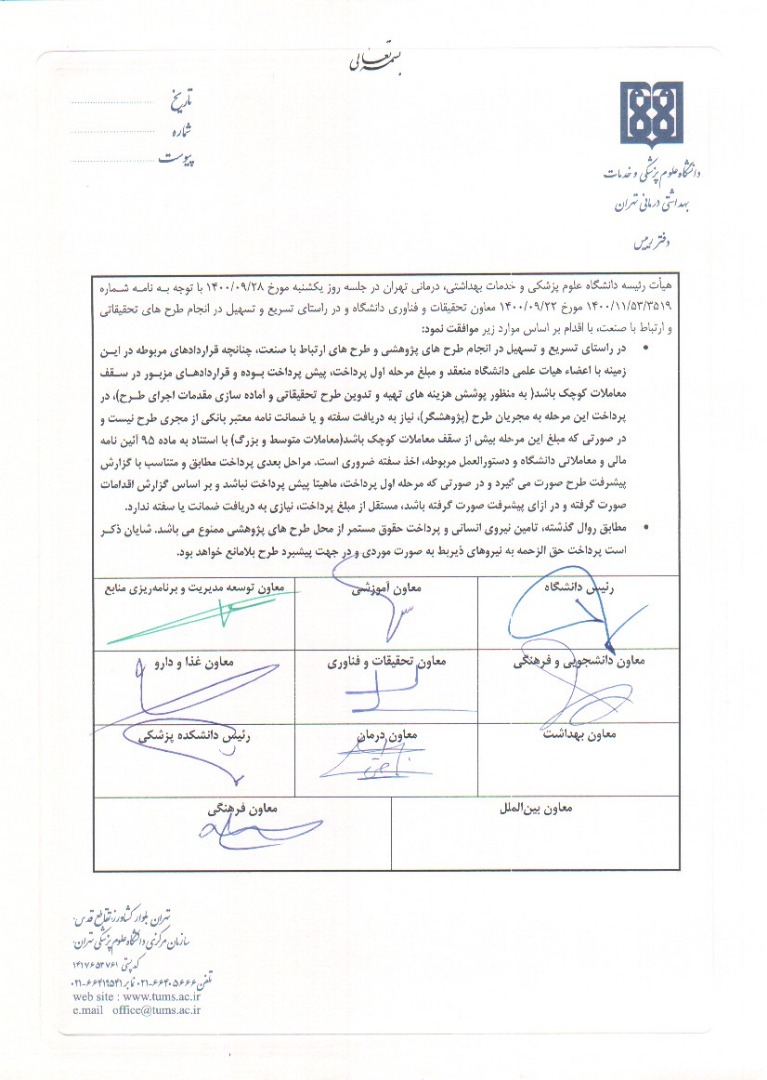 بسمه تعالی
تاریخ
شماره
پیوست
دانشگاه علوم پزشکی و خدمات
بهداشتی درمانی تهران
دفتر رییس
هیأت رئیسه دانشگاه علوم پزشکی و خدمات بهداشتی، درمانی تهران در جلسه روز یکشنبه مورخ ۱۴۰۰/۰۹/۲۸ با توجه به نامه شماره
۱۴۰۰/۱۱/۵۳/۳۵۱۹ مورخ ۱۴۰۰/۰۹/۲۲ معاون تحقیقات و فناوری دانشگاه و در راستای تسریع و تسهیل در انجام طرح های تحقیقاتی
و ارتباط با صنعت، با اقدام بر اساس موارد زیر موافقت نمود:
• در راستای تسریع و تسهیل در انجام طرح های پژوهشی و طرح های ارتباط با صنعت، چنانچه قراردادهای مربوطه در این
زمینه با اعضاء هیات علمی دانشگاه منعقد و مبلغ مرحله اول پرداخت، پیش پرداخت بوده و قراردادهای مزبور در سقف
معاملات کوچک باشد( به منظور پوشش هزینه های تهیه و تدوین طرح تحقیقاتی و آماده سازی مقدمات اجرای طرح)، در
پرداخت این مرحله به مجریان طرح (پژوهشگر)، نیاز به دریافت سفته و یا ضمانت نامه معتبر بانکی از مجری طرح نیست و
در صورتی که مبلغ این مرحله بیش از سقف معاملات کوچک باشد(معاملات متوسط و بزرگ) با استناد به ماده ۹۵ آئین نامه
مالی و معاملاتی دانشگاه و دستورالعمل مربوطه، اخذ سفته ضروری است. مراحل بعدی پرداخت مطابق و متناسب با گزارش
پیشرفت طرح صورت می گیرد و در صورتی که مرحله اول پرداخت، ماهیتا پیش پرداخت نباشد و بر اساس گزارش اقدامات
صورت گرفته و در ازای پیشرفت صورت گرفته باشد، مستقل از مبلغ پرداخت، نیازی به دریافت ضمانت یا سفته ندارد.
• مطابق روال گذشته، تامین نیروی انسانی و پرداخت حقوق مستمر از محل طرح های پژوهشی ممنوع می باشد. شایان ذکر
است پرداخت حق الزحمه به نیروهای ذیربط به صورت موردی و در جهت پیشبرد طرح بلامانع خواهد بود.
رئیس دانشگاه
معاون آموزشی
معاون توسعه مدیریت و برنامه‌ریزی منابع
معاون دانشجویی و فرهنگی
معاون تحقیقات و فناوری
معاون غذا و دارو
معاون بهداشت
معاون درمان
رئیس دانشکده پزشکی
معاون بین‌الملل
معاون فرهنگی
تهران بلوار کشاورز تقاطع قدس
سازمان مرکزی دانشگاه علوم پزشکی تهران
کد پستی ۱۴۱۷۶۵۳۷۶۱
تلفن ۶۶۴۰۵۶۶۶-۰۲۱ نمابر ۶۶۴۱۹۵۳۱-۰۲۱
web site : www.tums.ac.ir
e.mail office@tums.ac.ir